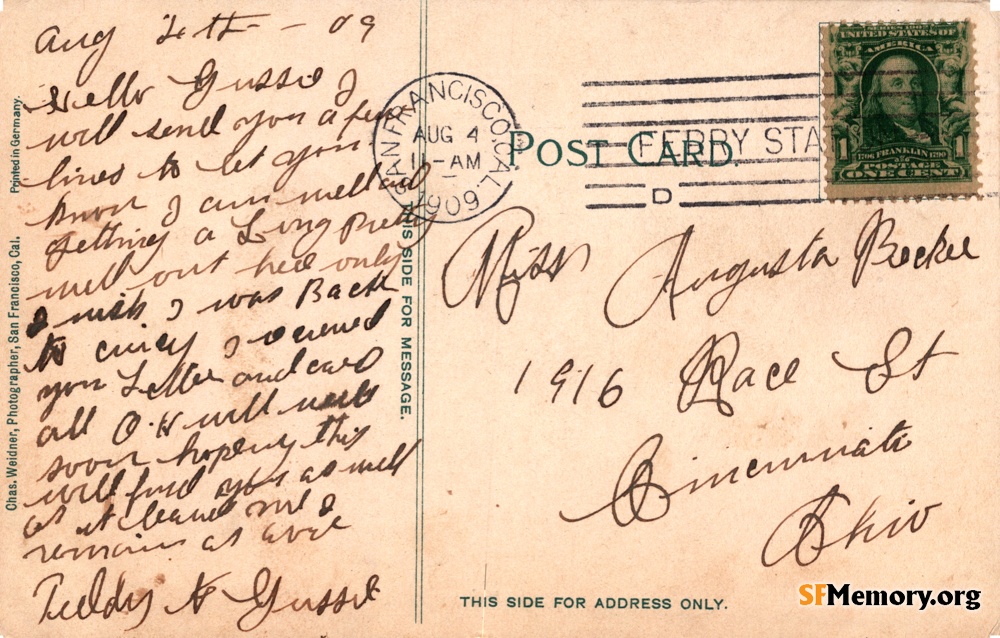 Aug 4th - 09
Hello Gussie I
will send you a few
lines to let you
know I am well and
getting a Long Pretty
well out heer only
I wish I was Back
to cincy I received
you Letter and card
all O.K will write
soon hopeing this
will find you as well
as it leaves me I
remain as ever
Teddy to Gussie
Printed in Germany.
Chas. Weidner, Photographer, San Francisco, Cal.
THIS SIDE FOR MESSAGE.
SAN FRANCISCO, CAL.
AUG 4
11-AM
1909
POST CARD.
FERRY STA
D
SERIES 1902
UNITED STATES OF
AMERICA
1 1
1706 FRANKLIN 1790
POSTAGE
ONE CENT
Miss Augusta Becker
1916 Race St
Cincinnati
Ohio
THIS SIDE FOR ADDRESS ONLY.
SFMemory.org